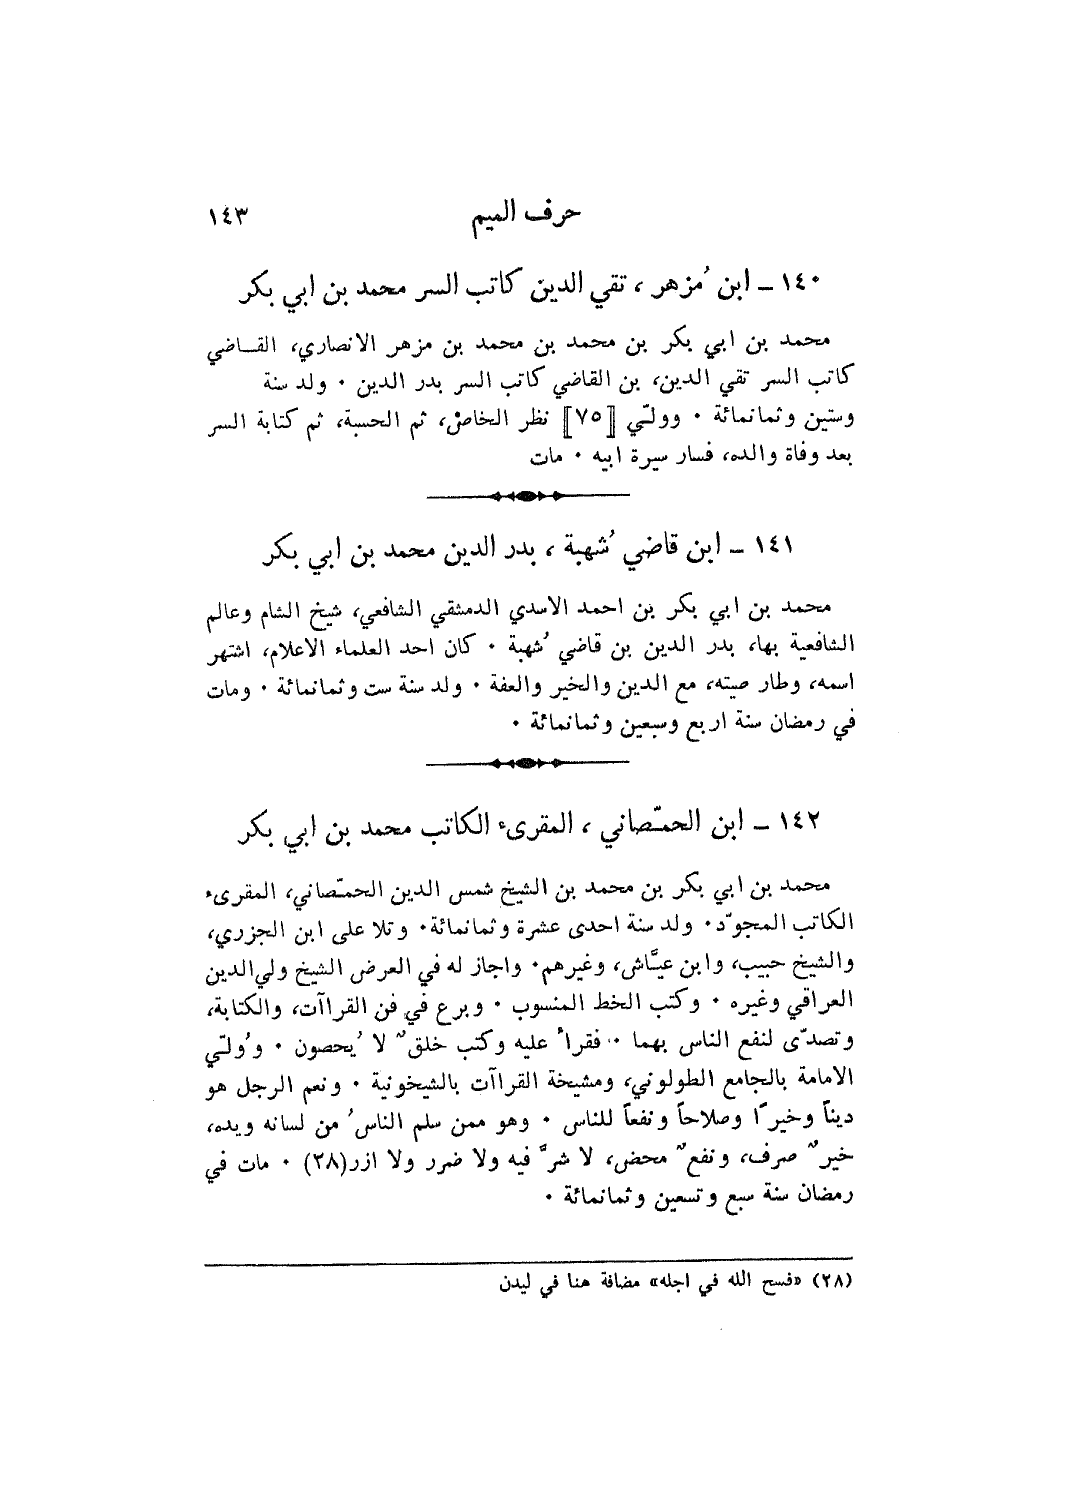 حرف الميم ١٤٣
١٤٠ ـ ابن مُزهر ، تقي الدين كاتب السر محمد بن ابي بكر
محمد بن ابي بكر بن محمد بن محمد بن مزهر الانصاري، القــاضي
كاتب السر تقي الدين، بن القاضي كاتب السر بدر الدين ٠ ولد سنة
وستين وثمانمائة ٠ وولّي [٧٥] نظر الخاصْ، ثم الحسبة، ثم كتابة السر
بعد وفاة والده، فسار سيرة ابيه ٠ مات
١٤١ ـ ابن قاضي شُهبة ، بدر الدين محمد بن ابي بكر
محمد بن ابي بكر بن احمد الاسدي الدمشقي الشافعي، شيخ الشام وعالم
الشافعية بها، بدر الدين بن قاضي شُهبة ٠ كان احد العلماء الاعلام، اشتهر
اسمه، وطار صيته، مع الدين والخير والعفة ٠ ولد سنة ست وثمانمائة ٠ ومات
في رمضان سنة اربع وسبعين وثمانمائة ٠
١٤٢ ـ ابن الحمّصاني ، المقرىء الكاتب محمد بن ابي بكر
محمد بن ابي بكر بن محمد بن الشيخ شمس الدين الحمّصاني، المقرىء
الكاتب المجوّد٠ ولد سنة احدى عشرة وثمانمائة٠ وتلا على ابن الجزري،
والشيخ حبيب، وابن عيّاش، وغيرهم٠ واجاز له في العرض الشيخ ولي الدين
العراقي وغيره ٠ وكتب الخط المنسوب ٠ وبرع في فن القراآت، والكتابة،
وتصدّى لنفع الناس بهما ٠ فقرأ عليه وكتب خلقٌ لا يُحصون ٠ ووُلّي
الامامة بالجامع الطولوني، ومشيخة القراآت بالشيخونية ٠ ونعم الرجل هو
ديناً وخيرًا وصلاحاً ونفعاً للناس ٠ وهو ممن سلم الناسُ من لسانه ويده،
خيرٌ صرف، ونفعٌ محض، لا شرَّ فيه ولا ضرر ولا ازر(٢٨) ٠ مات في
رمضان سنة سبع وتسعين وثمانمائة ٠
(٢٨) «فسح الله في اجله» مضافة هنا في ليدن